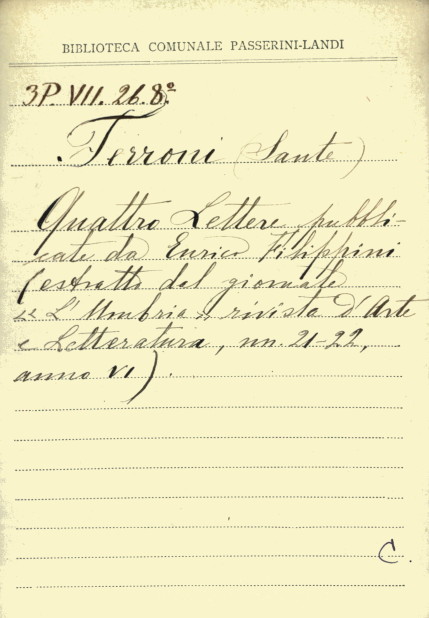 BIBLIOTECA COMUNALE PASSERINI-LANDI
3P. VII. 26. 8º
Ferroni (Sante)
Quattro Lettere pubbli-
cate da Enrico Filippini
(estratto dal giornale
« L'Umbria » rivista d'Arte
e Letteratura, nn. 21-22,
anno VI).
C.